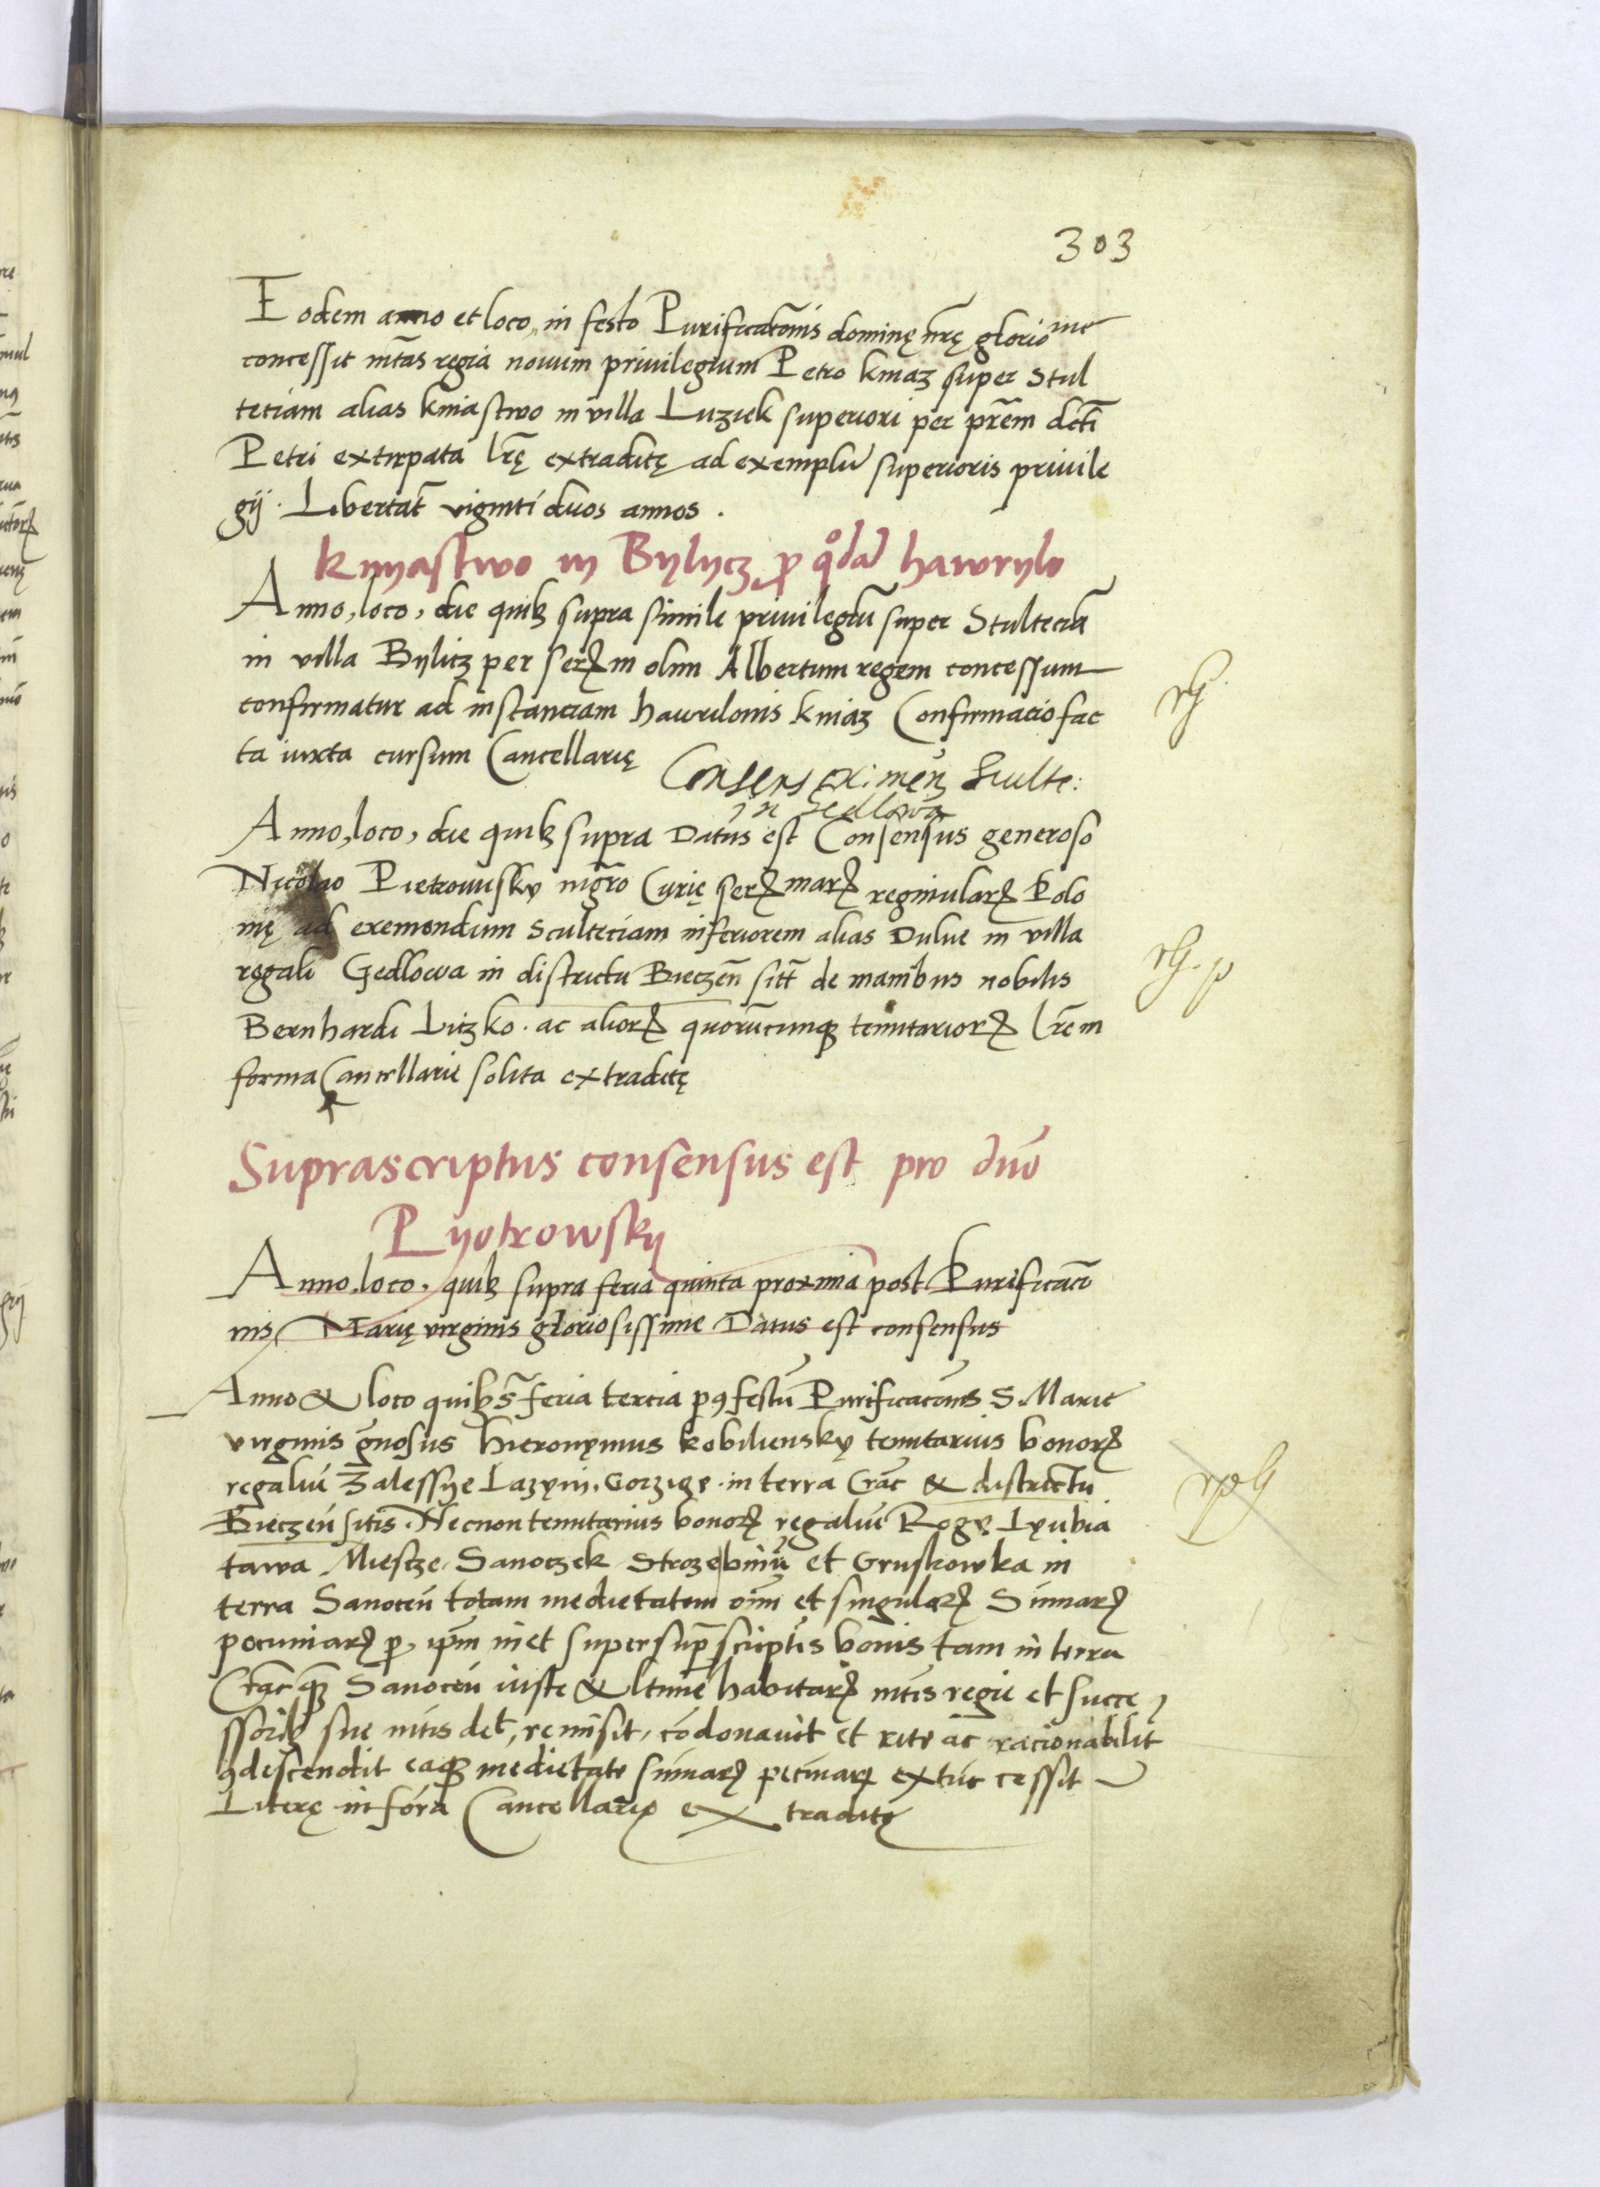 303
Eodem anno et loco, in festo Purificatõnis dominę nr̃ę glorio me
concessit mtãs regia nouum priuilegium Petro kniaz super Stul
teciam alias kniastwo in villa Luziek superiori per prẽm dcti
Petri extirpata lrę̃ extraditę ad exemplũ superioris priuile
gij. Libertat̃ viginti duos annos.
knyastwo in Bylycz p qo̊dã hawrylo
Anno, loco, die quibꝫ supra simile priuilegiũ super Stulteciã
in villa Bylicz per serꝫm olim Albertum regem concessum
confirmatur ad instanciam hawrilonis kniaz Confirmacio fac
ta iuxta cursum Cancellarię
Consens eximẽn Sculte:
in Gedlowa
Anno, loco, die quibꝫ supra Datus est Consensus generoso
Nicolao Pietrowsky mgr̃o Curię serꝫmarꝝ reginularꝝ Polo
nię ad exemendum Sculteciam inferiorem alias Dulne in villa
regali Gedlowa in districtu Bieczeñ sitt̃ de manibus nobilis
Bernhardi Liczko. ac aliorꝝ quorũcunqꝫ tenutariorꝝ lrẽ in
forma Cancellarie solita extraditę
Suprascriptus consensus est pro dno̅
Pyotrowsky
Anno, loco, quibꝫ supra feria quinta proxima post Purificacio
nis Marię virginis gloriosissime Datus est consensus
Anno & loco quibꝫ s̃ feria tercia pꝰ festũ Purificacõnis S. Marie
virginis gñosus Hieronymus kobiliensky tenutarius bonorꝝ
regaliũ Zalessye Lazyni, Gorzicze in terra Crac̃ & districtu
Bieczeñ sitis. Necnon tenutarius bonorꝝ regaliũ Rogy Lyubia
tawa Miescze Sanoczek Strozebinũ et Gruskowka in
terra Sanoceñ totam medietatem oĩm et singularꝝ Sũmarꝝ
pecuniarꝝ p ipm̃ in et super supr̃ascriptis bonis tam in terra
Crac̃ qꝫ Sanoceñ iuste & ltĩme habitarꝝ mtis regie et succe
ssoribꝫ sue mtis det̃, remisit, cõdonauit et rite ac racionabilit̃
ꝯdescendit eaqꝫ medietate sũmarꝝ pecuniarꝝ extũc cessit
Literę in forã Cancellarię extraditę